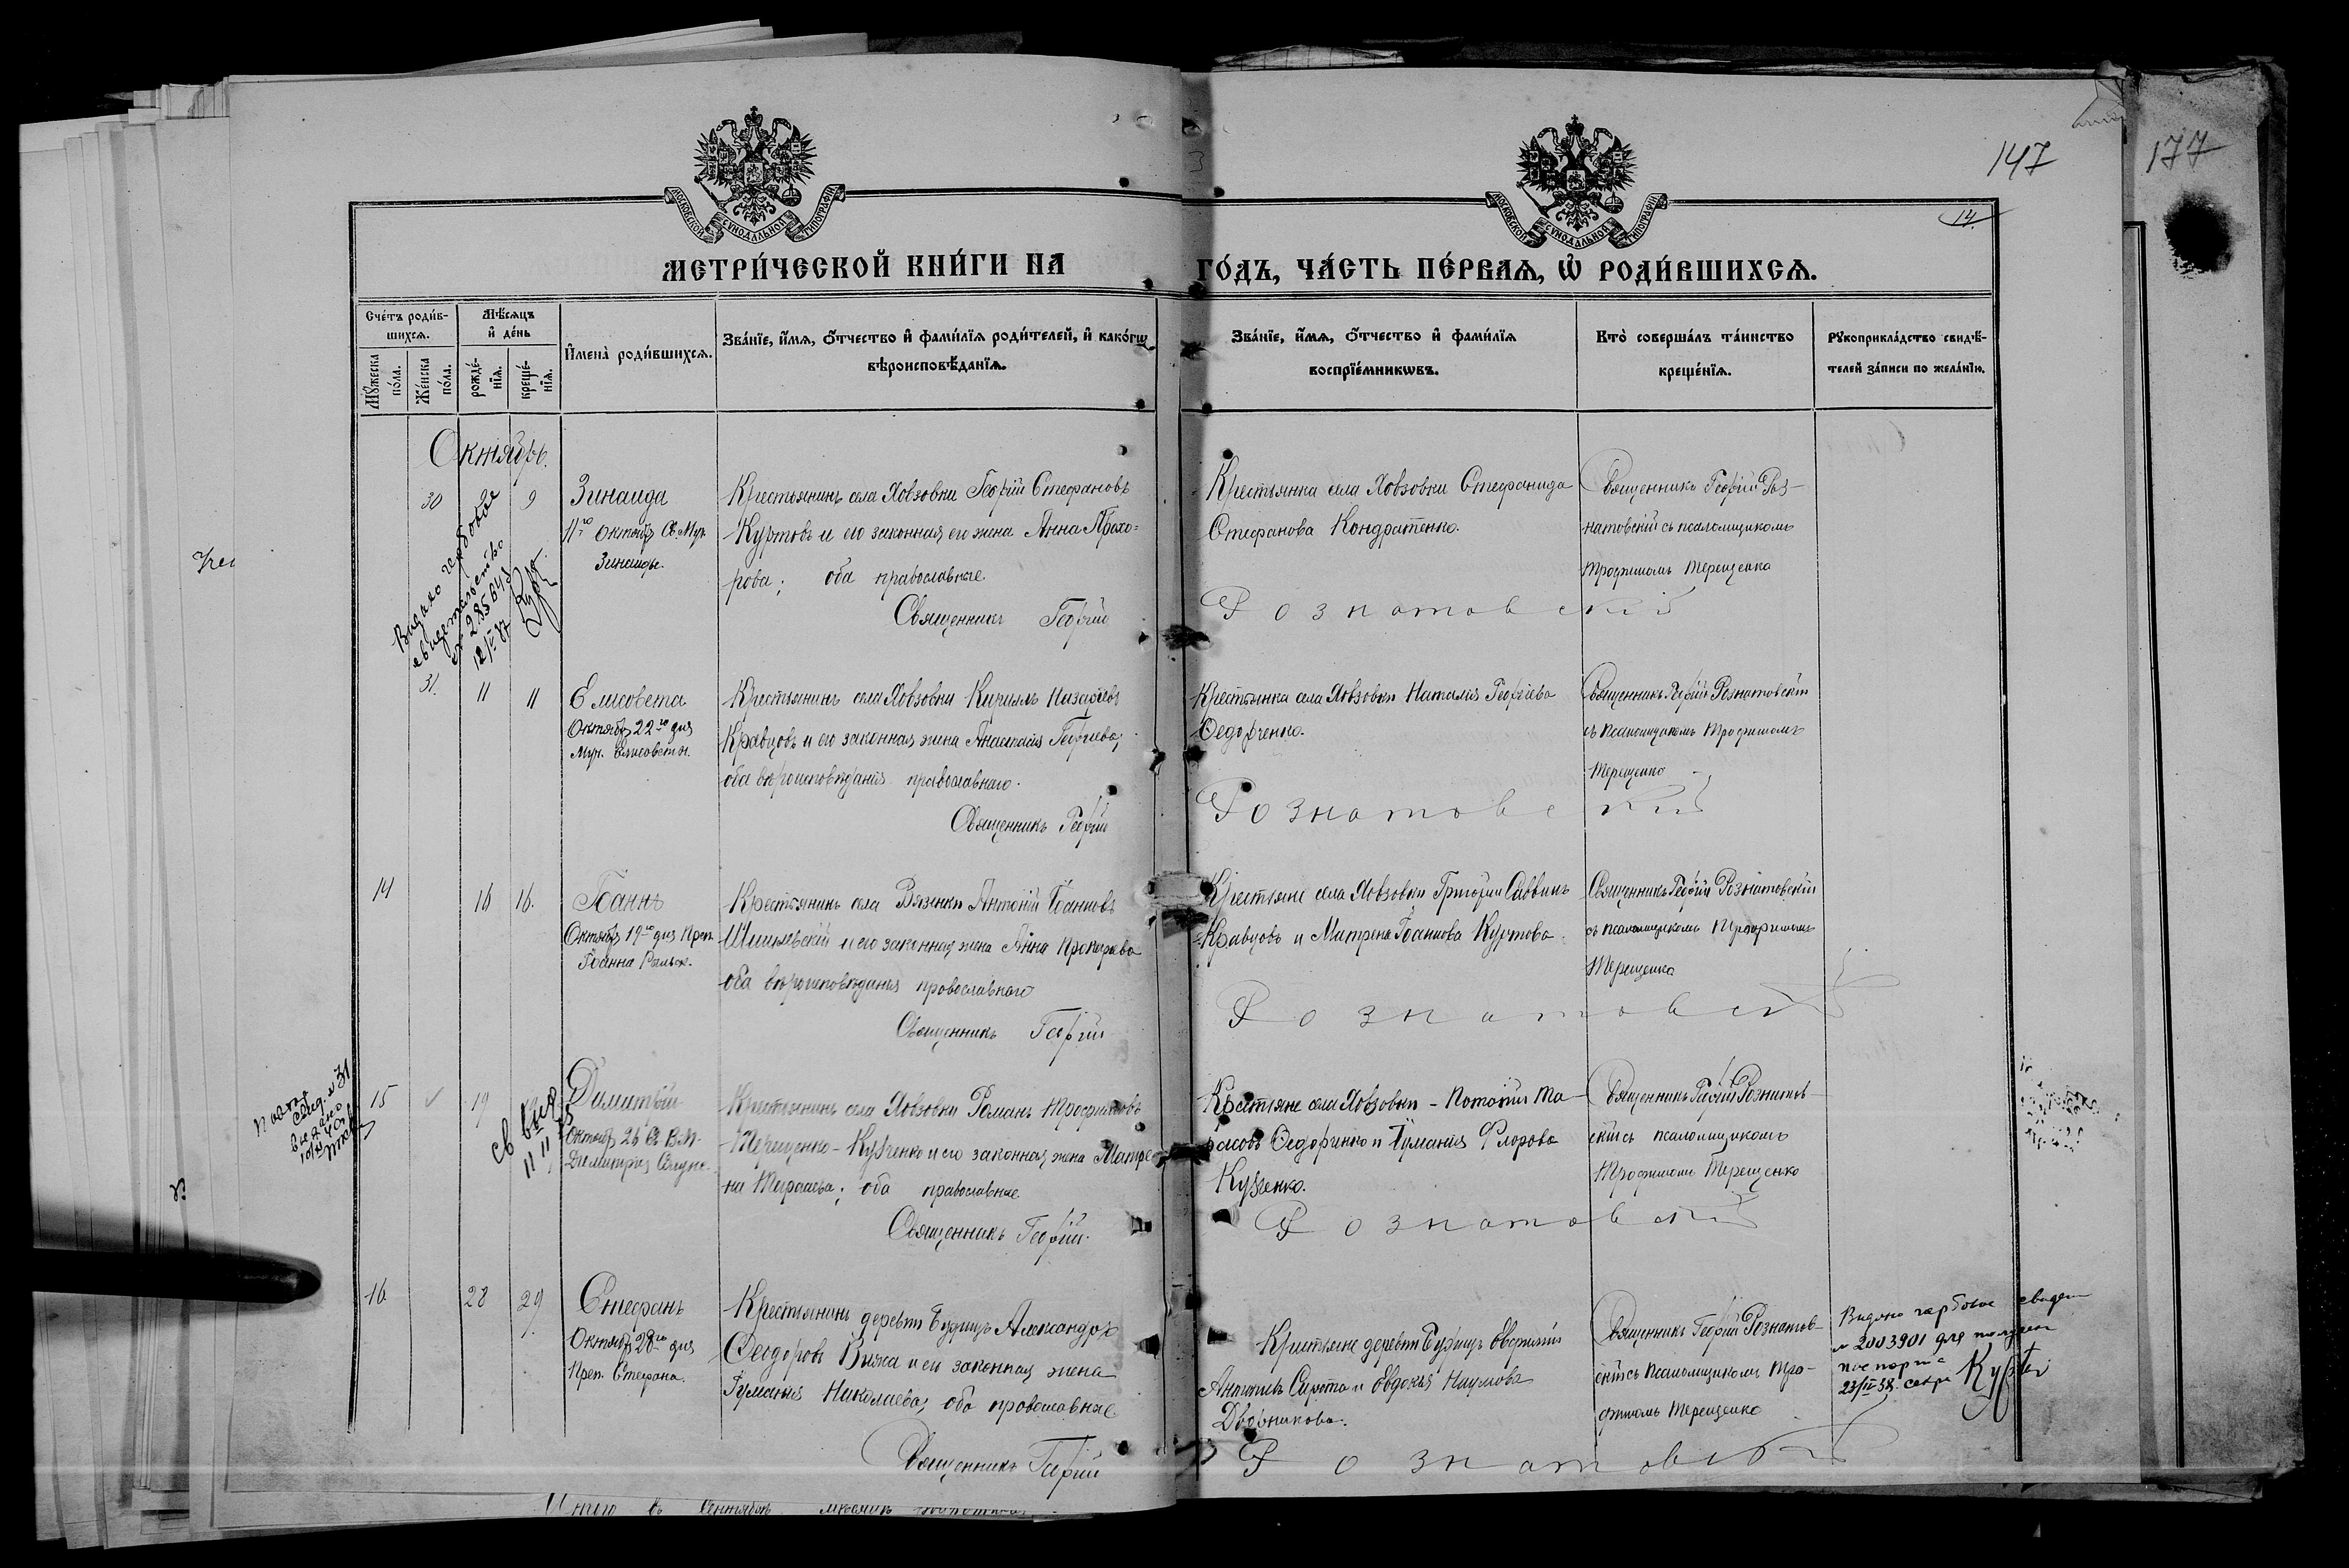 147
177
14.
МОСКОВСКОЙ СУНОДАЛЬНОЙ ТИПОГРАФІИ
МОСКОВСКОЙ СУНОДАЛЬНОЙ ТИПОГРАФІИ
МЕТРИ́ЧЕСКОЙ КНИ́ГИ НА
ГО́ДЪ, ЧА́СТЬ ПЕ́РВАѦ, Ѡ҆ РОДИ́ВШИХСѦ.
Сче́тъ роди́в-
шихсѧ.
Мꙋ́жеска
по́ла.
Же́нска
по́ла.
Мѣ́сѧцъ
и҆ де́нь
рожде́-
нїѧ.
креще́-
нїѧ.
И҆мена̀ роди́вшихсѧ.
Зва́нїе, и҆́мѧ, ѻ҆́тчество и҆ фами́лїѧ роди́телей, и҆ како́гѡ
вѣроисповѣ́данїѧ.
Зва́нїе, и҆́мѧ, ѻ҆́тчество и҆ фами́лїѧ
воспрїе́мникѡвъ.
Кто̀ соверша́лъ та́инство
креще́нїѧ.
Рꙋкоприкла́дство свидѣ́-
телей за́писи по жела́нїю.
Октябрь.
30
9
Зинаида
11го Октябр Св. Муч.
Зинаиды.
Крестьянинъ села Ховзовки Георгій Стефановъ
Куртовъ и его законная его жена Анна Прохо-
рова; оба православные
Священникъ Георгій
Крестьянка села Ховзовки Стефанида
Стефанова Кондратенко.
Розматовскій
Священникъ Георгій Роз-
натовскій съ псаломщикомъ
Трофимомъ Терещенко
Видано гербове
свидетельство
№ 285643
12/IV 37
31.
11
11
Елисовета
Октябр 22го дня
Муч. Елисоветы.
Крестьянинъ села Ховзовки Кириллъ Назарьевъ
Кравцовъ и его законная жена Анастасія Георгіева;
оба вѣроисповѣданія православнаго.
Священникъ Георгій
Крестьянка села Ховзовки Наталія Георгіева
Федорченко.
Розматовскій
Священникъ Георгій Розматовскій
съ псаломщикомъ Трофимомъ
Терещенко
14
16
16.
Іоаннъ
Октябр 19го дня Преп.
Іоанна Рыльск.
Крестьянинъ села Вязенки Антоній Іоанновъ
и его законная жена Анна Прохорова
оба вѣроисповѣданія православнаго
Священникъ Георгій
Крестьяне села Ховзовки Григорій Саввинъ
Кравцовъ и Матрена Іоаннова Куртова.
Розматовскій
Священникъ Георгій Розматовскій
съ псаломщикомъ Трофимомъ
Терещенко
15
19
Димитрій
Октябр 26 Св. В. М.
Димитрія Солунс.
Крестьянинъ села Ховзовки Романъ Трофимовъ
Терещенко-Кузченко и его законная жена Матре-
на оба православные
Священникъ Георгій.
Крестьяне села Ховзовки - Потапій Та-
расовъ Федоренко и Іуліанія Флорова
Кузченко.
Розматовскій
Священникъ Георгій Розматов-
скій съ псаломщикомъ
Трофимомъ Терещенко
16
28
29
Стефанъ
Октябр 28го дня
Преп. Стефана.
Крестьянинъ деревни Будищъ Александръ
Феодоровъ и его законная жена
Іуліанія Николаева; оба православные
Священникъ Георгій
Крестьяне деревни Будищъ
Сирота и Евдокія Наумова
Дворникова.
Розматовскій
Священникъ Георгій Розматов-
скій съ псаломщикомъ Тро-
фимомъ Терещенко
Видано гербове свидет
№ 2003901 для
паспорта
23/IV 38.
Итого въ Сентябрѣ мѣсяцѣ